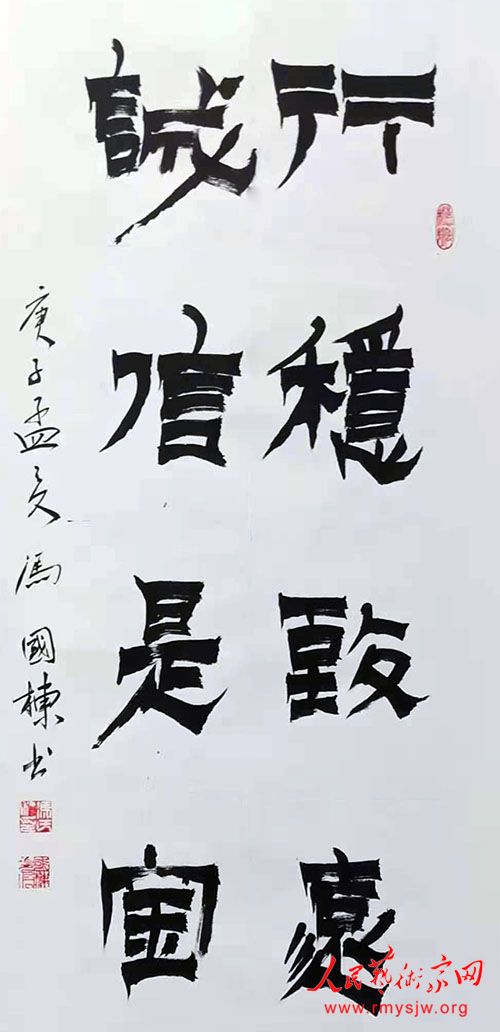 行穩致遠
誠信是宝
庚子孟夏馮國棟书
人民藝術家网
www.rmysjw.org